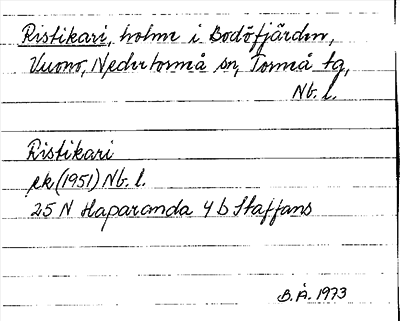 Ristikari, holme i Bodöfjärden,
Vuono, Nedertorneå sn, Torneå tg,
Nb. l.
Ristikari
ek (1951) Nb. l.
25 N Haparanda 4 b Staffans
B. Å. 1973